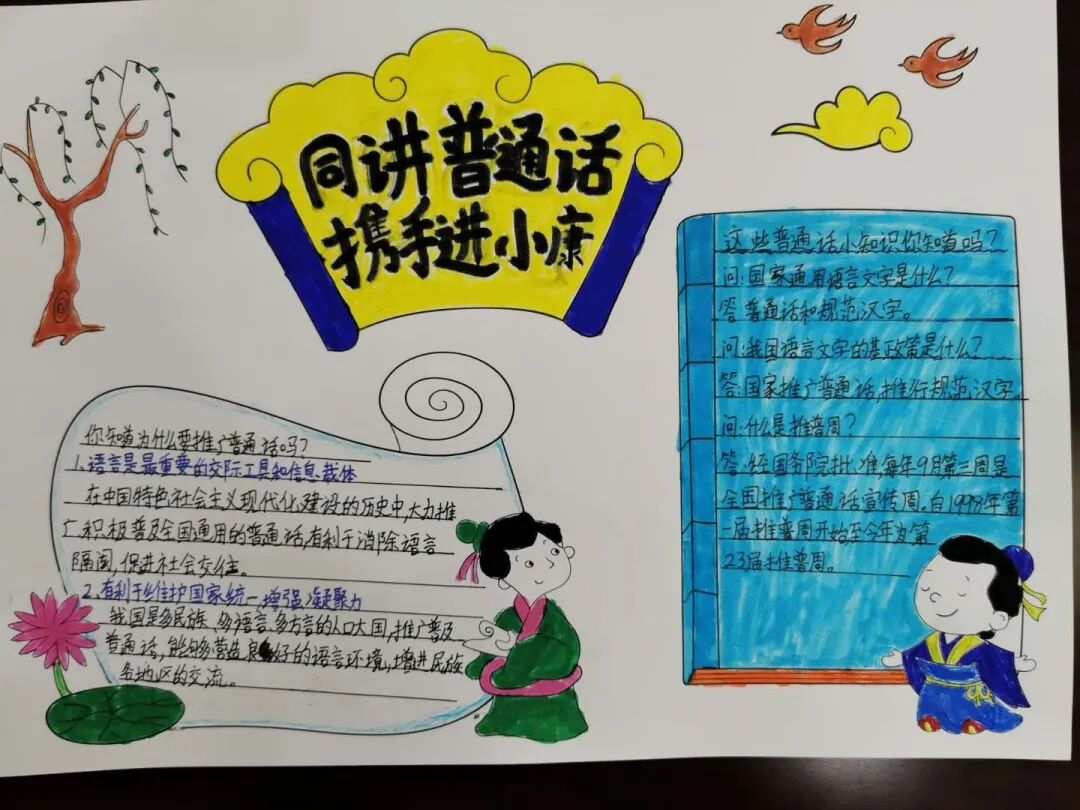 同讲普通话
携手进小康
你知道为什么要推广普通话吗?
1、语言是最重要的交际工具和信息载体
在中国特色社会主义现代化建设的历史中,大力推
广.积极普及全国通用的普通话,有利于消除语言
隔阂,促进社会交往。
2、有利于维护国家统一,增强凝聚力
我国是多民族、多语言、多方言的人口大国,推广普及
普通话,能够营造良好的语言环境,增进民族
各地区的交流。
这些普通话小知识你知道吗?
问:国家通用语言文字是什么?
答:普通话和规范汉字。
问:我国语言文字的基政策是什么?
答:国家推广普通话,推行规范汉字。
问:什么是推普周?
答:经国务院批准,每年9月第三周是
全国推广普通话宣传周。自1998年第
一届推普周开始至今年为第
23届推普周。